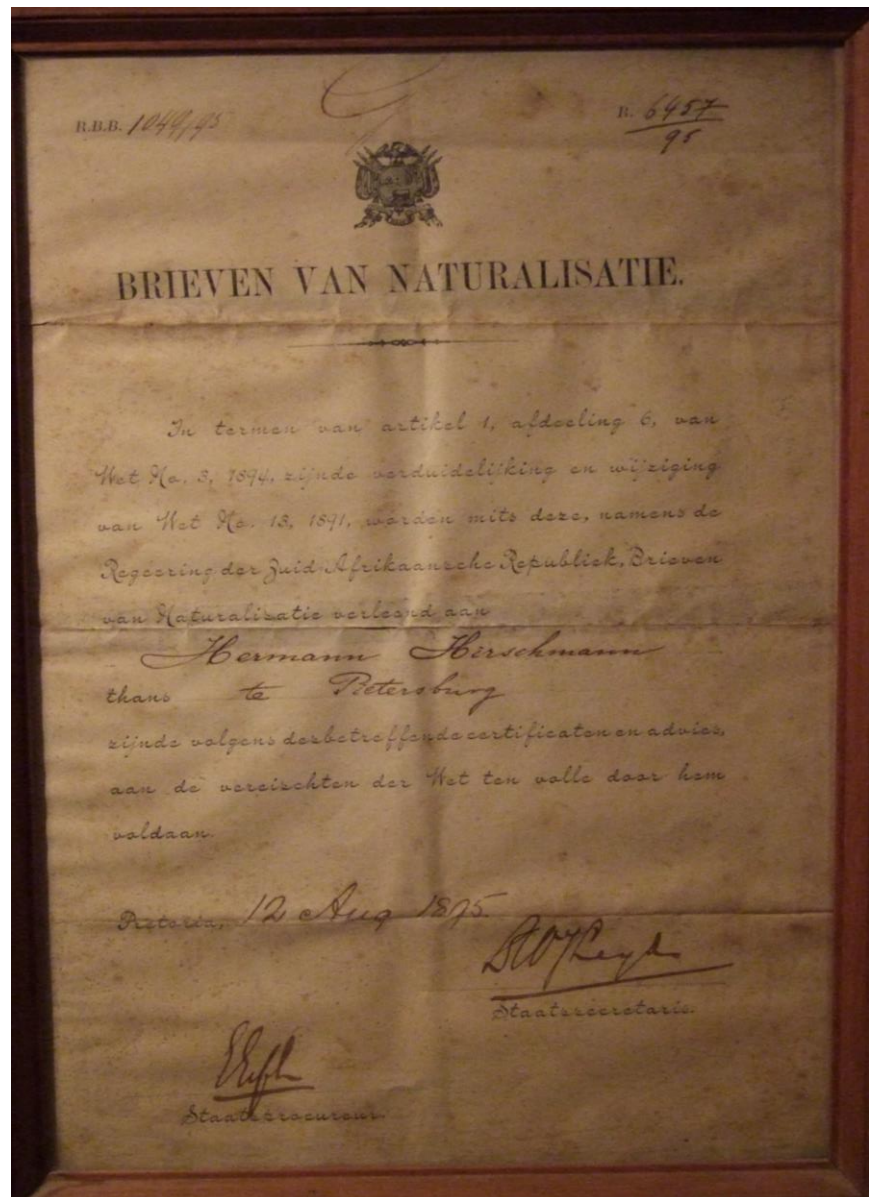 R.B.B. 1049/95
R. 6457/95
BRIEVEN VAN NATURALISATIE.
In termen van artikel 1, afdeeling 6, van
Wet No. 3, 1894, zijnde verduidelijking en wijziging
van Wet No. 13, 1891, worden mits deze, namens de
Regeering der Zuid-Afrikaansche Republiek, Brieven
van Naturalisatie verleend aan
Hermann Hirschmann
thans te Pietersburg
zijnde volgens desbetreffende certificaten en advies,
aan de vereischten der Wet ten volle door hem
voldaan.
Pretoria, 12 Aug 1895.
Staatssecretaris.
Staatsprocureur.